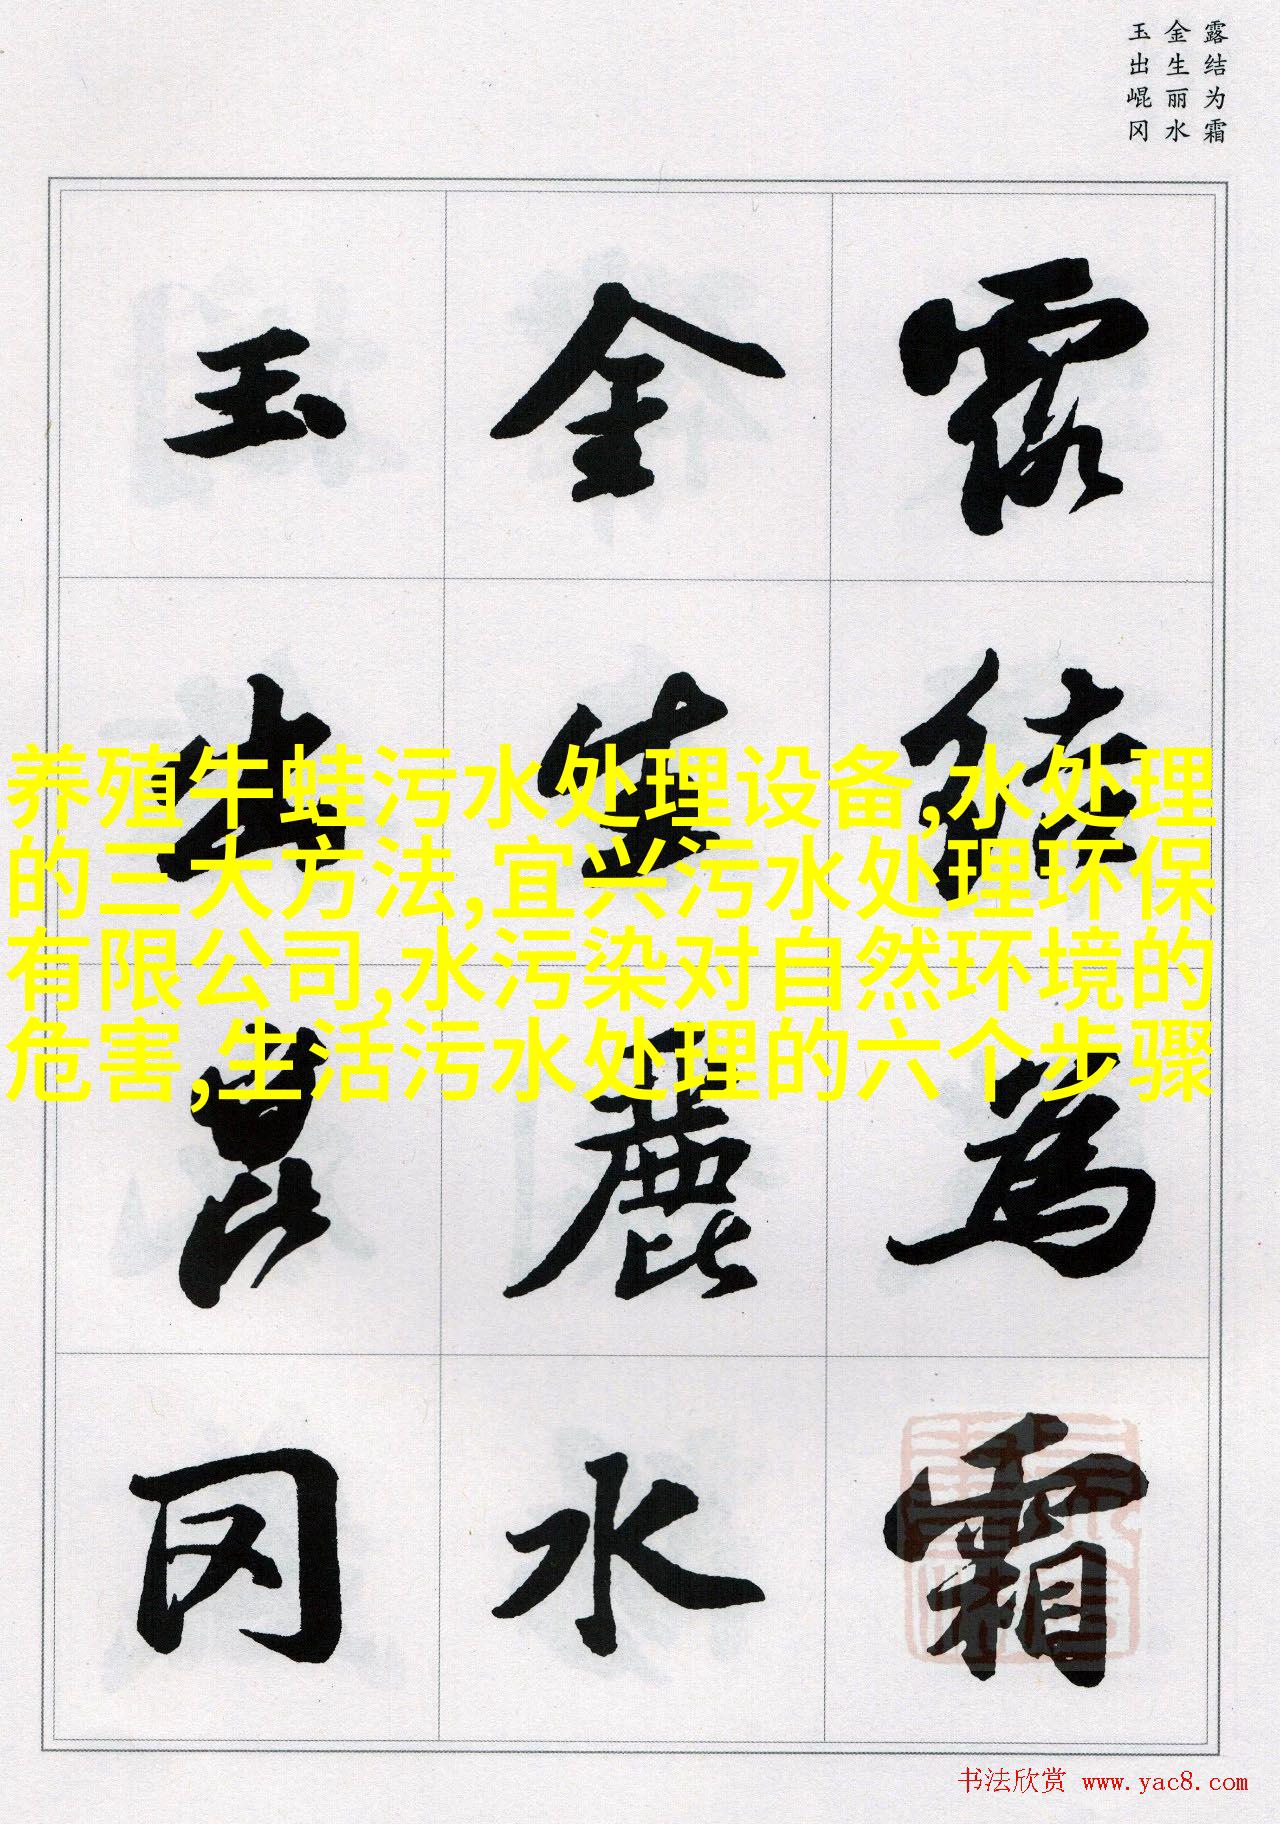 露结为霜
金生丽水
玉出崐冈
露結為霜
金生麗水
玉出崑冈
养殖牛蛙污水处理设备,水处理
的三大方法,宜兴污水处理环保
有限公司,水污染对自然环境的
危害,生活污水处理的六个步骤
书法欣赏 www.yac8.com